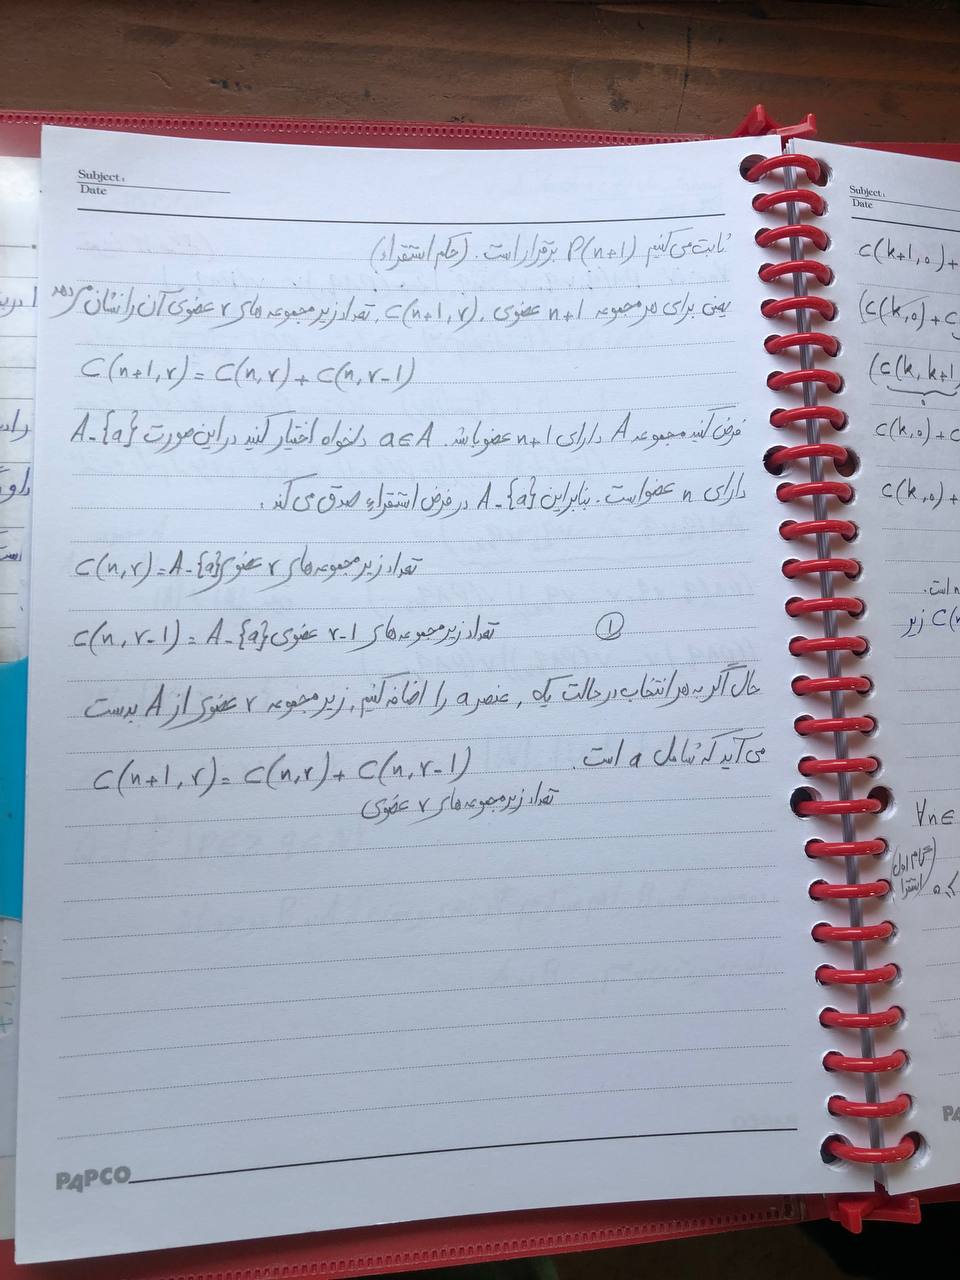 Subject:
Date
ثابت می‌کنیم P(n+1) برقرار است. (حکم استقراء)
یعنی برای هر مجموعه n+1 عضوی، C(n+1,r)، تعداد زیر مجموعه های r عضوی آن را نشان می دهد
C(n+1,r) = C(n,r) + C(n,r-1)
فرض کنید مجموعه A دارای n+1 عضو باشد. a∈A دلخواه اختیار کنید در این صورت A-{a}
دارای n عضو است. بنابراین A-{a} در فرض استقراء صدق می کند.
C(n,r) = A-{a} تعداد زیر مجموعه های r عضوی
C(n,r-1) = A-{a} تعداد زیر مجموعه های r-1 عضوی ①
حال اگر به هر انتخاب در حالت یک، عنصر a را اضافه کنیم، زیر مجموعه r عضوی از A بدست
می آید که شامل a است. C(n+1,r) = C(n,r) + C(n,r-1)
تعداد زیر مجموعه های r عضوی
PAPCO
Subject:
Date
C(k+1,0)+
(C(k,0)+C
(C(k,k+1)
0
C(k,0)+C
C(k,0)+
است.
زیر C(n
∀n∈
(گام اول
استقرا)